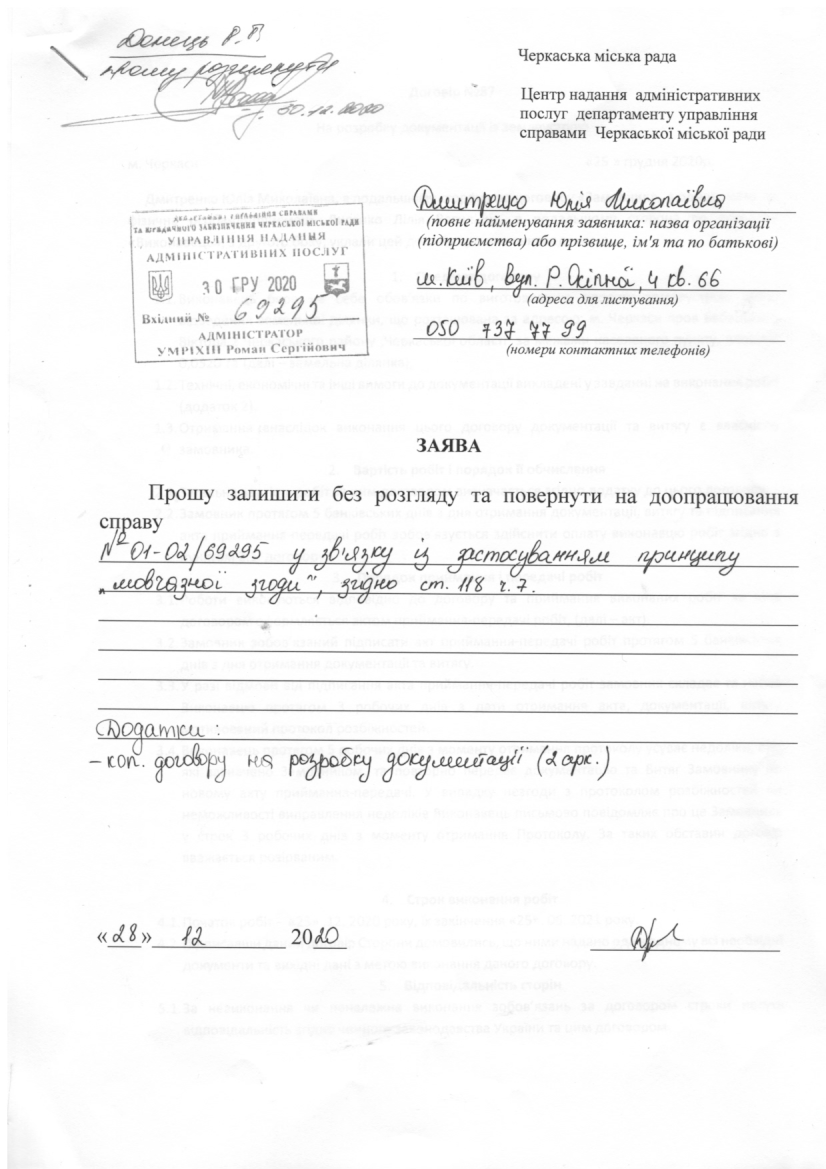 Донець Р. В.
прошу розглянути
30.12.2020
Черкаська міська рада
Центр надання адміністративних
послуг департаменту управління
справами Черкаської міської ради
Дмитренко Юлія Миколаївна
(повне найменування заявника: назва організації
(підприємства) або прізвище, ім'я та по батькові)
м. Київ, вул. Р. Окіпної, 4 кв. 66
(адреса для листування)
050 737 77 99
(номери контактних телефонів)
ДЕПАРТАМЕНТ УПРАВЛІННЯ СПРАВАМИ
ТА ЮРИДИЧНОГО ЗАБЕЗПЕЧЕННЯ ЧЕРКАСЬКОЇ МІСЬКОЇ РАДИ
УПРАВЛІННЯ НАДАННЯ
АДМІНІСТРАТИВНИХ ПОСЛУГ
30 ГРУ 2020
Вхідний № 69295
АДМІНІСТРАТОР
УМРІХІН Роман Сергійович
ЗАЯВА
Прошу залишити без розгляду та повернути на доопрацювання
справу
№ 01-02/69295 у зв'язку із застосуванням принципу
„мовчазної згоди", згідно ст. 118 ч. 7.
Додатки :
- коп. договору на розробку документації (2 арк.)
«28» 12 2020